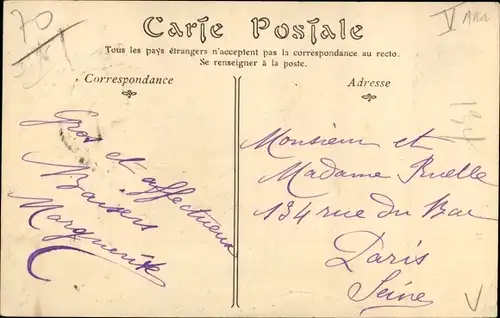 70
V
Carte Postale
Tous les pays étrangers n'acceptent pas la correspondance au recto.
Se renseigner à la poste.
Correspondance
Adresse
Gros et affectueux
Baisers
Marguerite
Monsieur et
Madame Ruelle
134 rue du Bac
Paris
Seine
V